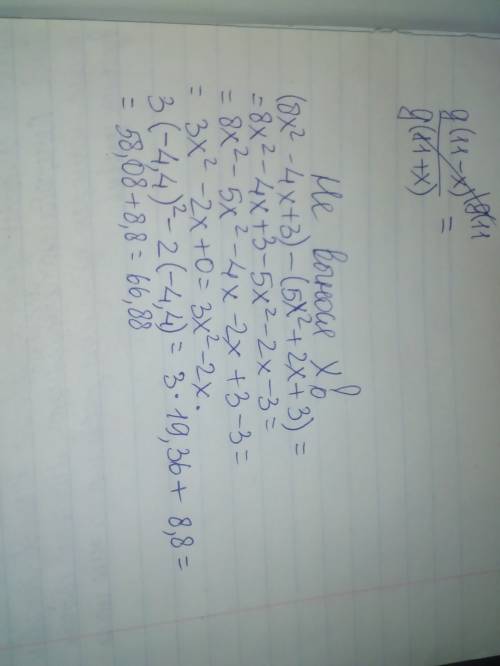 g(11-x)
g(11+x) =
Не вынося x
(8x² - 4x + 3) - (5x² + 2x + 3) =
= 8x² - 4x + 3 - 5x² - 2x - 3 =
= 8x² - 5x² - 4x - 2x + 3 - 3 =
= 3x² - 2x + 0 = 3x² - 2x.
3(-4,4)² - 2(-4,4) = 3·19,36 + 8,8 =
= 58,08 + 8,8 = 66,88